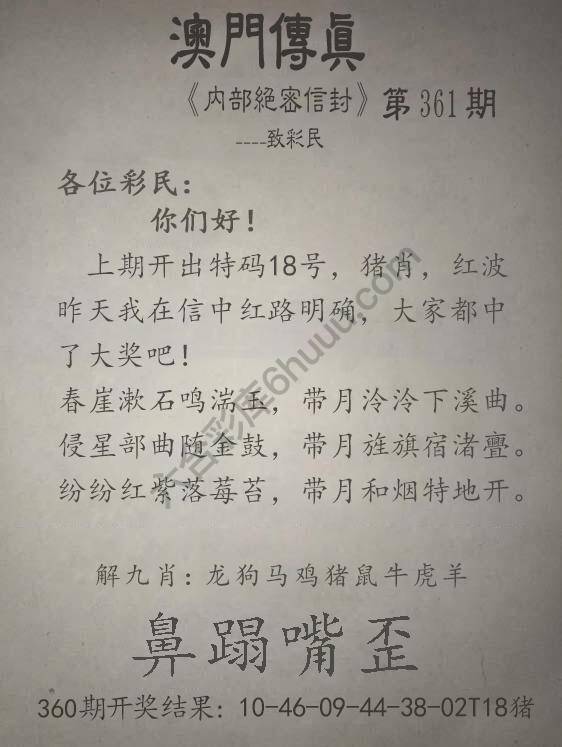 澳門傳眞
《内部絕密信封》第361期
----致彩民
各位彩民：
你们好！
上期开出特码18号，猪肖，红波
昨天我在信中红路明确，大家都中
了大奖吧！
春崖漱石鸣湍玉，带月泠泠下溪曲。
侵星部曲随金鼓，带月旌旗宿渚亹。
纷纷红紫落莓苔，带月和烟特地开。
六合彩库6huuu.com
解九肖：龙狗马鸡猪鼠牛虎羊
鼻蹋嘴歪
360期开奖结果：10-46-09-44-38-02T18猪